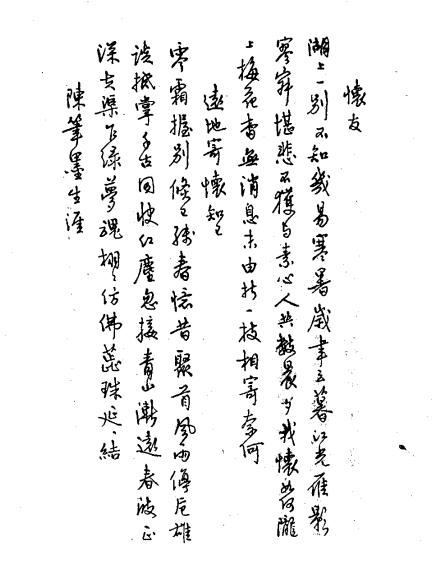 懷友
湖上一別不知幾易寒暑歲聿云暮江光雁影
寥寂堪悲不獲与素心人共數晨夕我懷如何隴
上梅花香無消息末由折一枝相寄奈何
遠地寄懷知己
零霜握別倏殘春憶昔聚首風雨傳卮雄
談抵掌千古同快紅塵忽接青山漸遠春波正
深渠乍綠夢魂栩々仿佛蕊珠延結
陳筆墨生涯